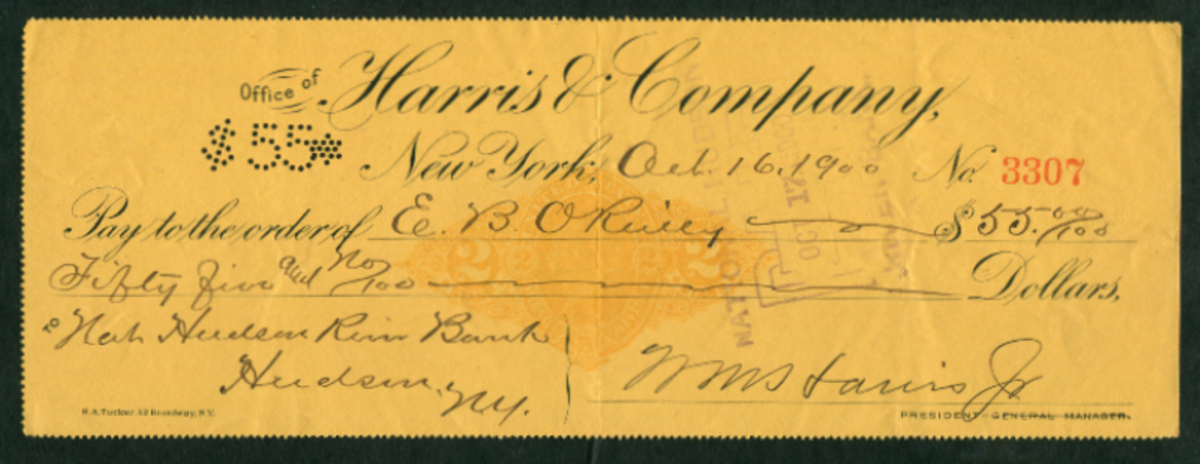 Office of Harris & Company,
$55*
New York, Oct. 16, 1900 No. 3307
Pay to the order of E. B. OReiley $55.00/100
Fifty five and No/100 Dollars,
to Nat. Hudson River Bank
Hudson, NY.
Wm S Harris Jr
PRESIDENT-GENERAL MANAGER.
R.A. Tucker, 52 Broadway, N.Y.
NATIONAL
OCT 17
2 2